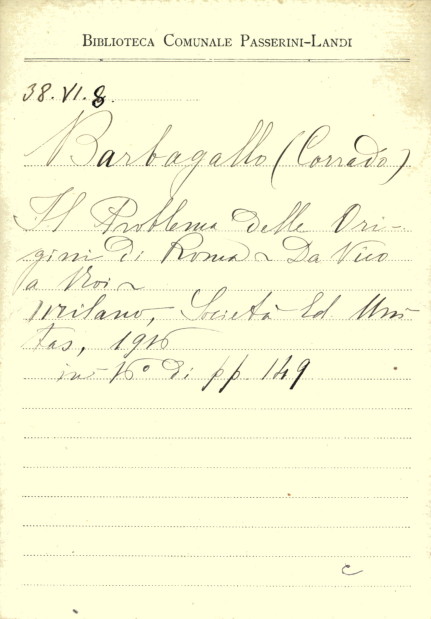 BIBLIOTECA COMUNALE PASSERINI-LANDI
38.VI.8.
Barbagallo (Corrado)
Il Problema delle Ori-
gini di Roma ~ Da Vico
a Noi ~
Milano, Società Ed Uni
tas, 1926
in 16° di pp. 149
c